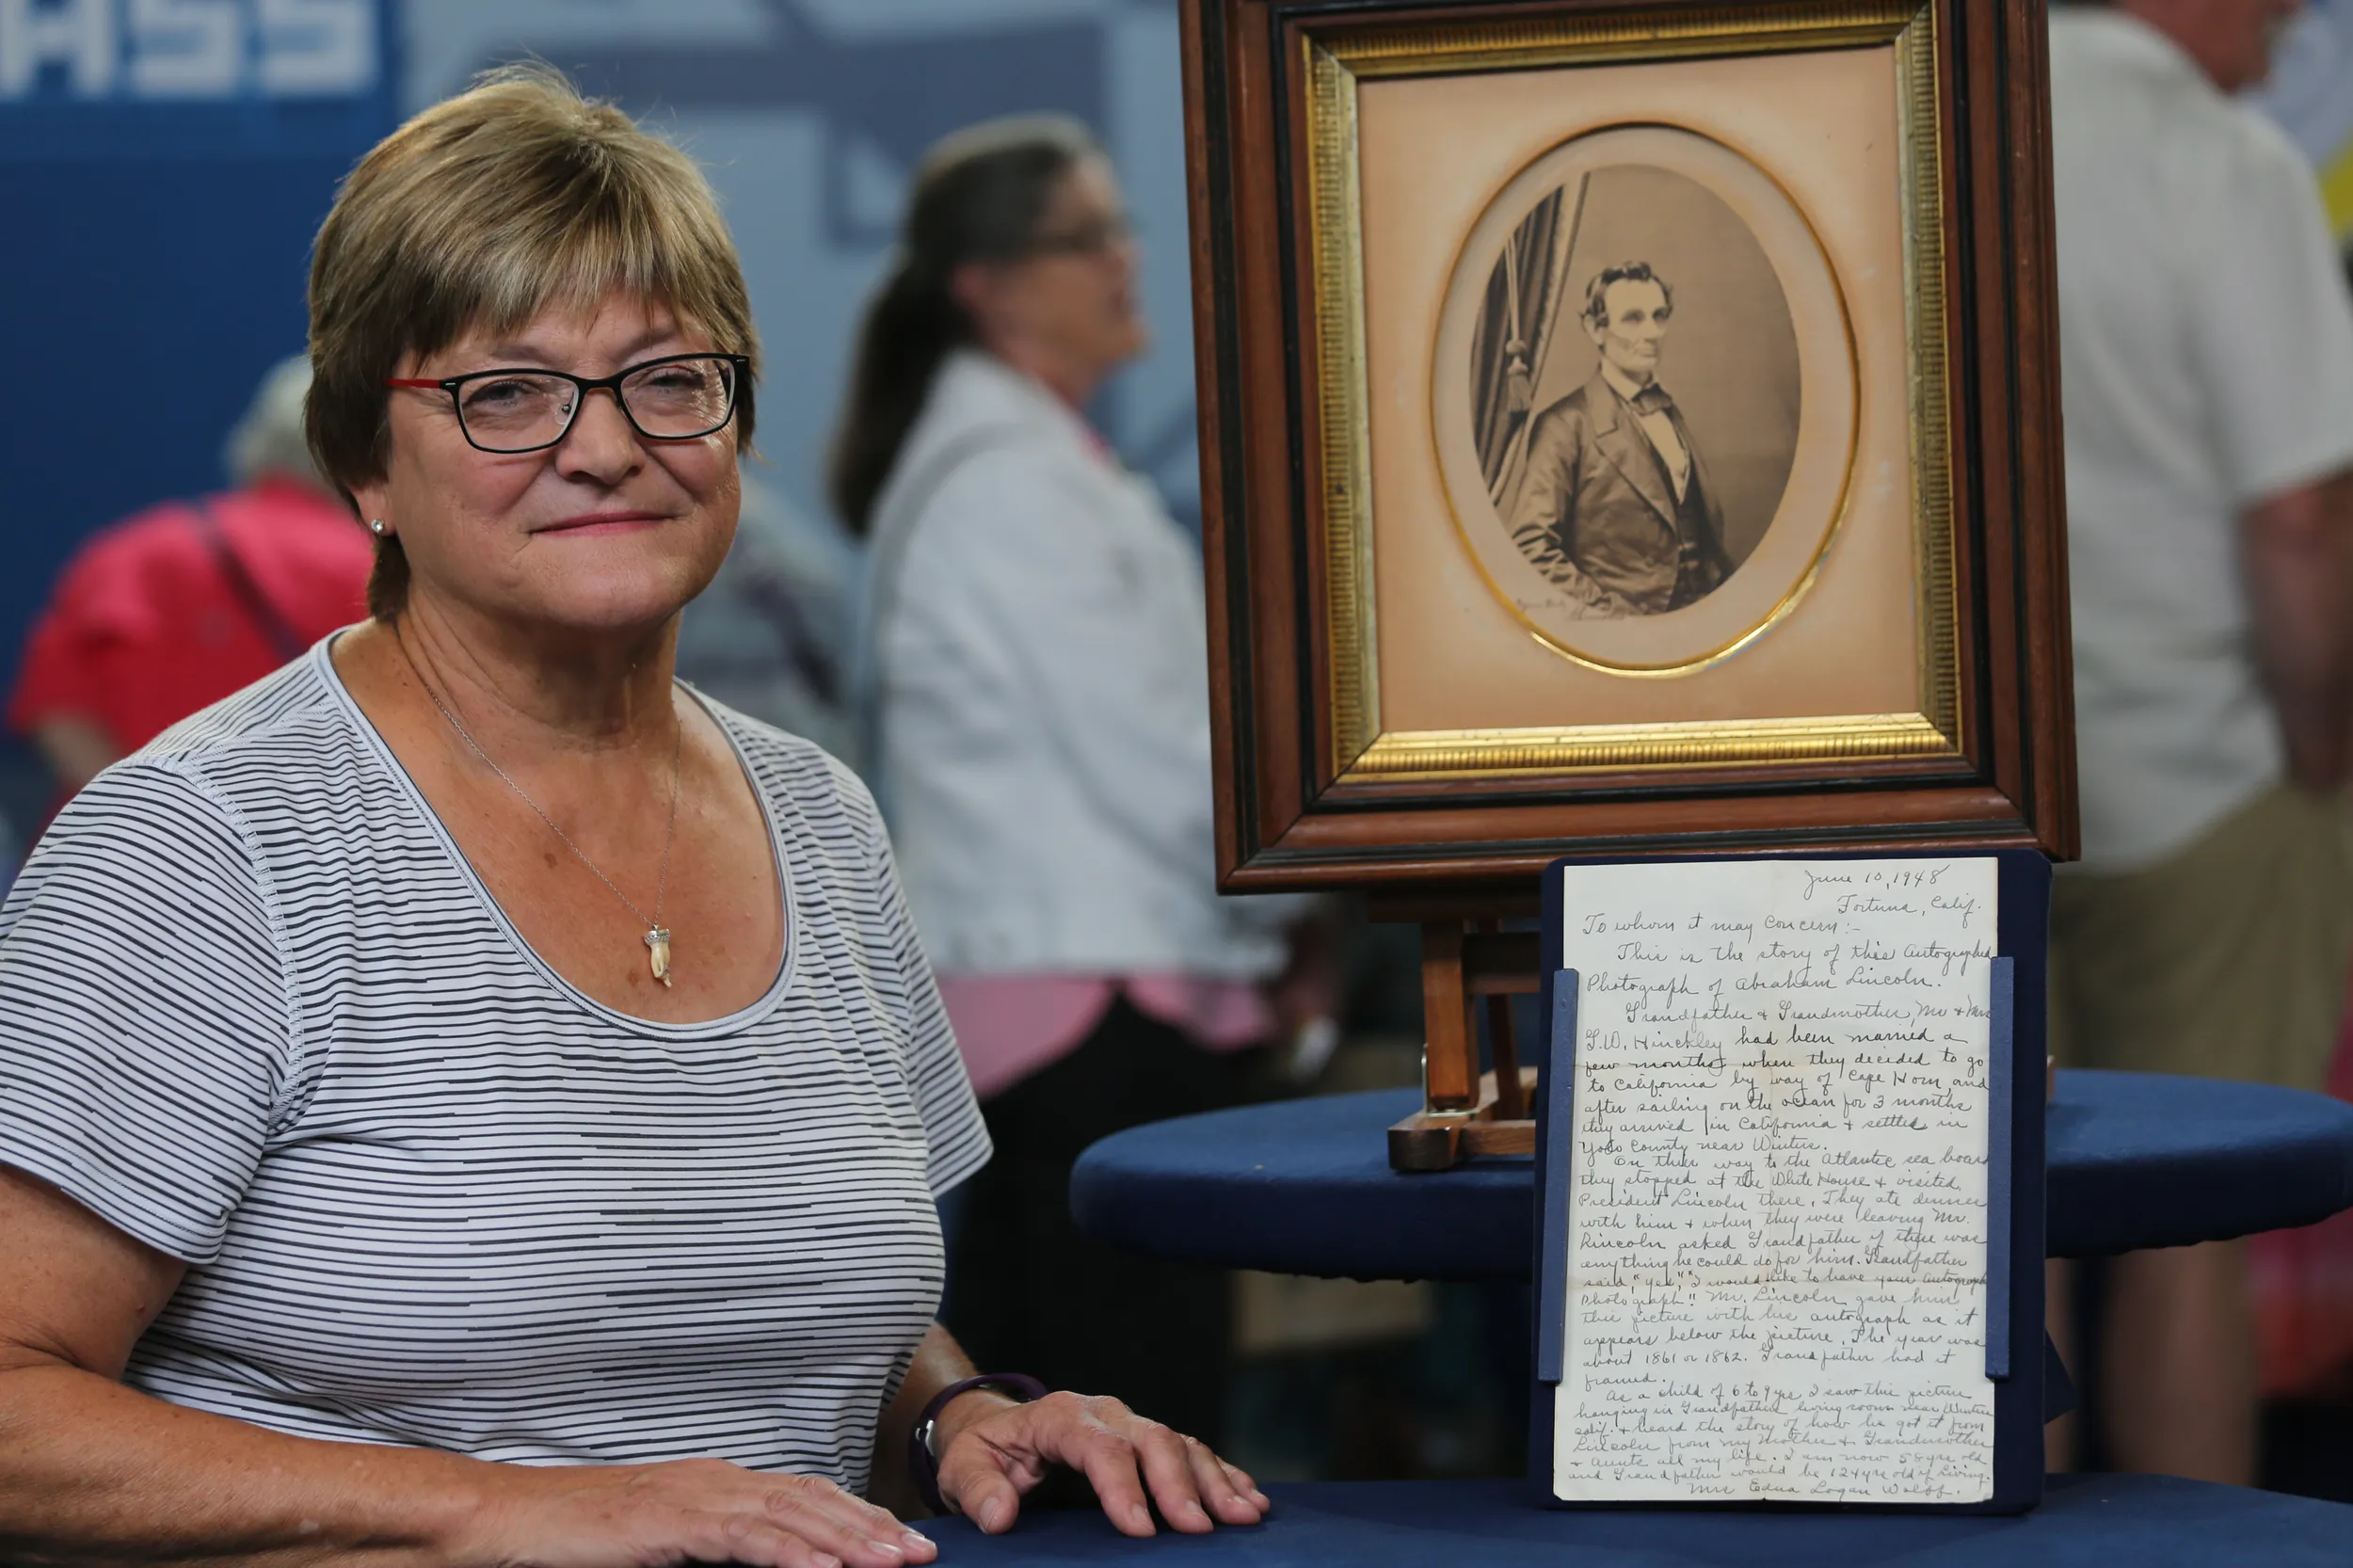 ASS
June 10, 1948
Fortuna, Calif.
To whom it may concern:-
This is the story of this Autographed
Photograph of Abraham Lincoln.
Grandfather & Grandmother, Mr & Mrs
G.W. Hinckley had been married a
few months when they decided to go
to California by way of Cape Horn, and
after sailing on the ocean for 3 months
they arrived in California & settled in
Yolo County near Winters.
On their way to the Atlantic sea board
they stopped at the White House & visited
President Lincoln there. They ate dinner
with him & when they were leaving Mr.
Lincoln asked Grandfather if there was
anything he could do for him. Grandfather
said, "Yes," "I would like to have your Autograph
Photograph". Mr. Lincoln gave him
this picture with his autograph as it
appears below the picture. The year was
about 1861 or 1862. Grandfather had it
framed.
As a child of 6 to 9 yrs I saw this picture
hanging in Grandfathers living room near Winters
Calif. & heard the story of how he got it from
Lincoln from my Mother & Grandmother
& Aunts all my life. I am now 58 yrs old
and Grandfather would be 124 yrs old if living.
Mrs Edna Logan Wolff.